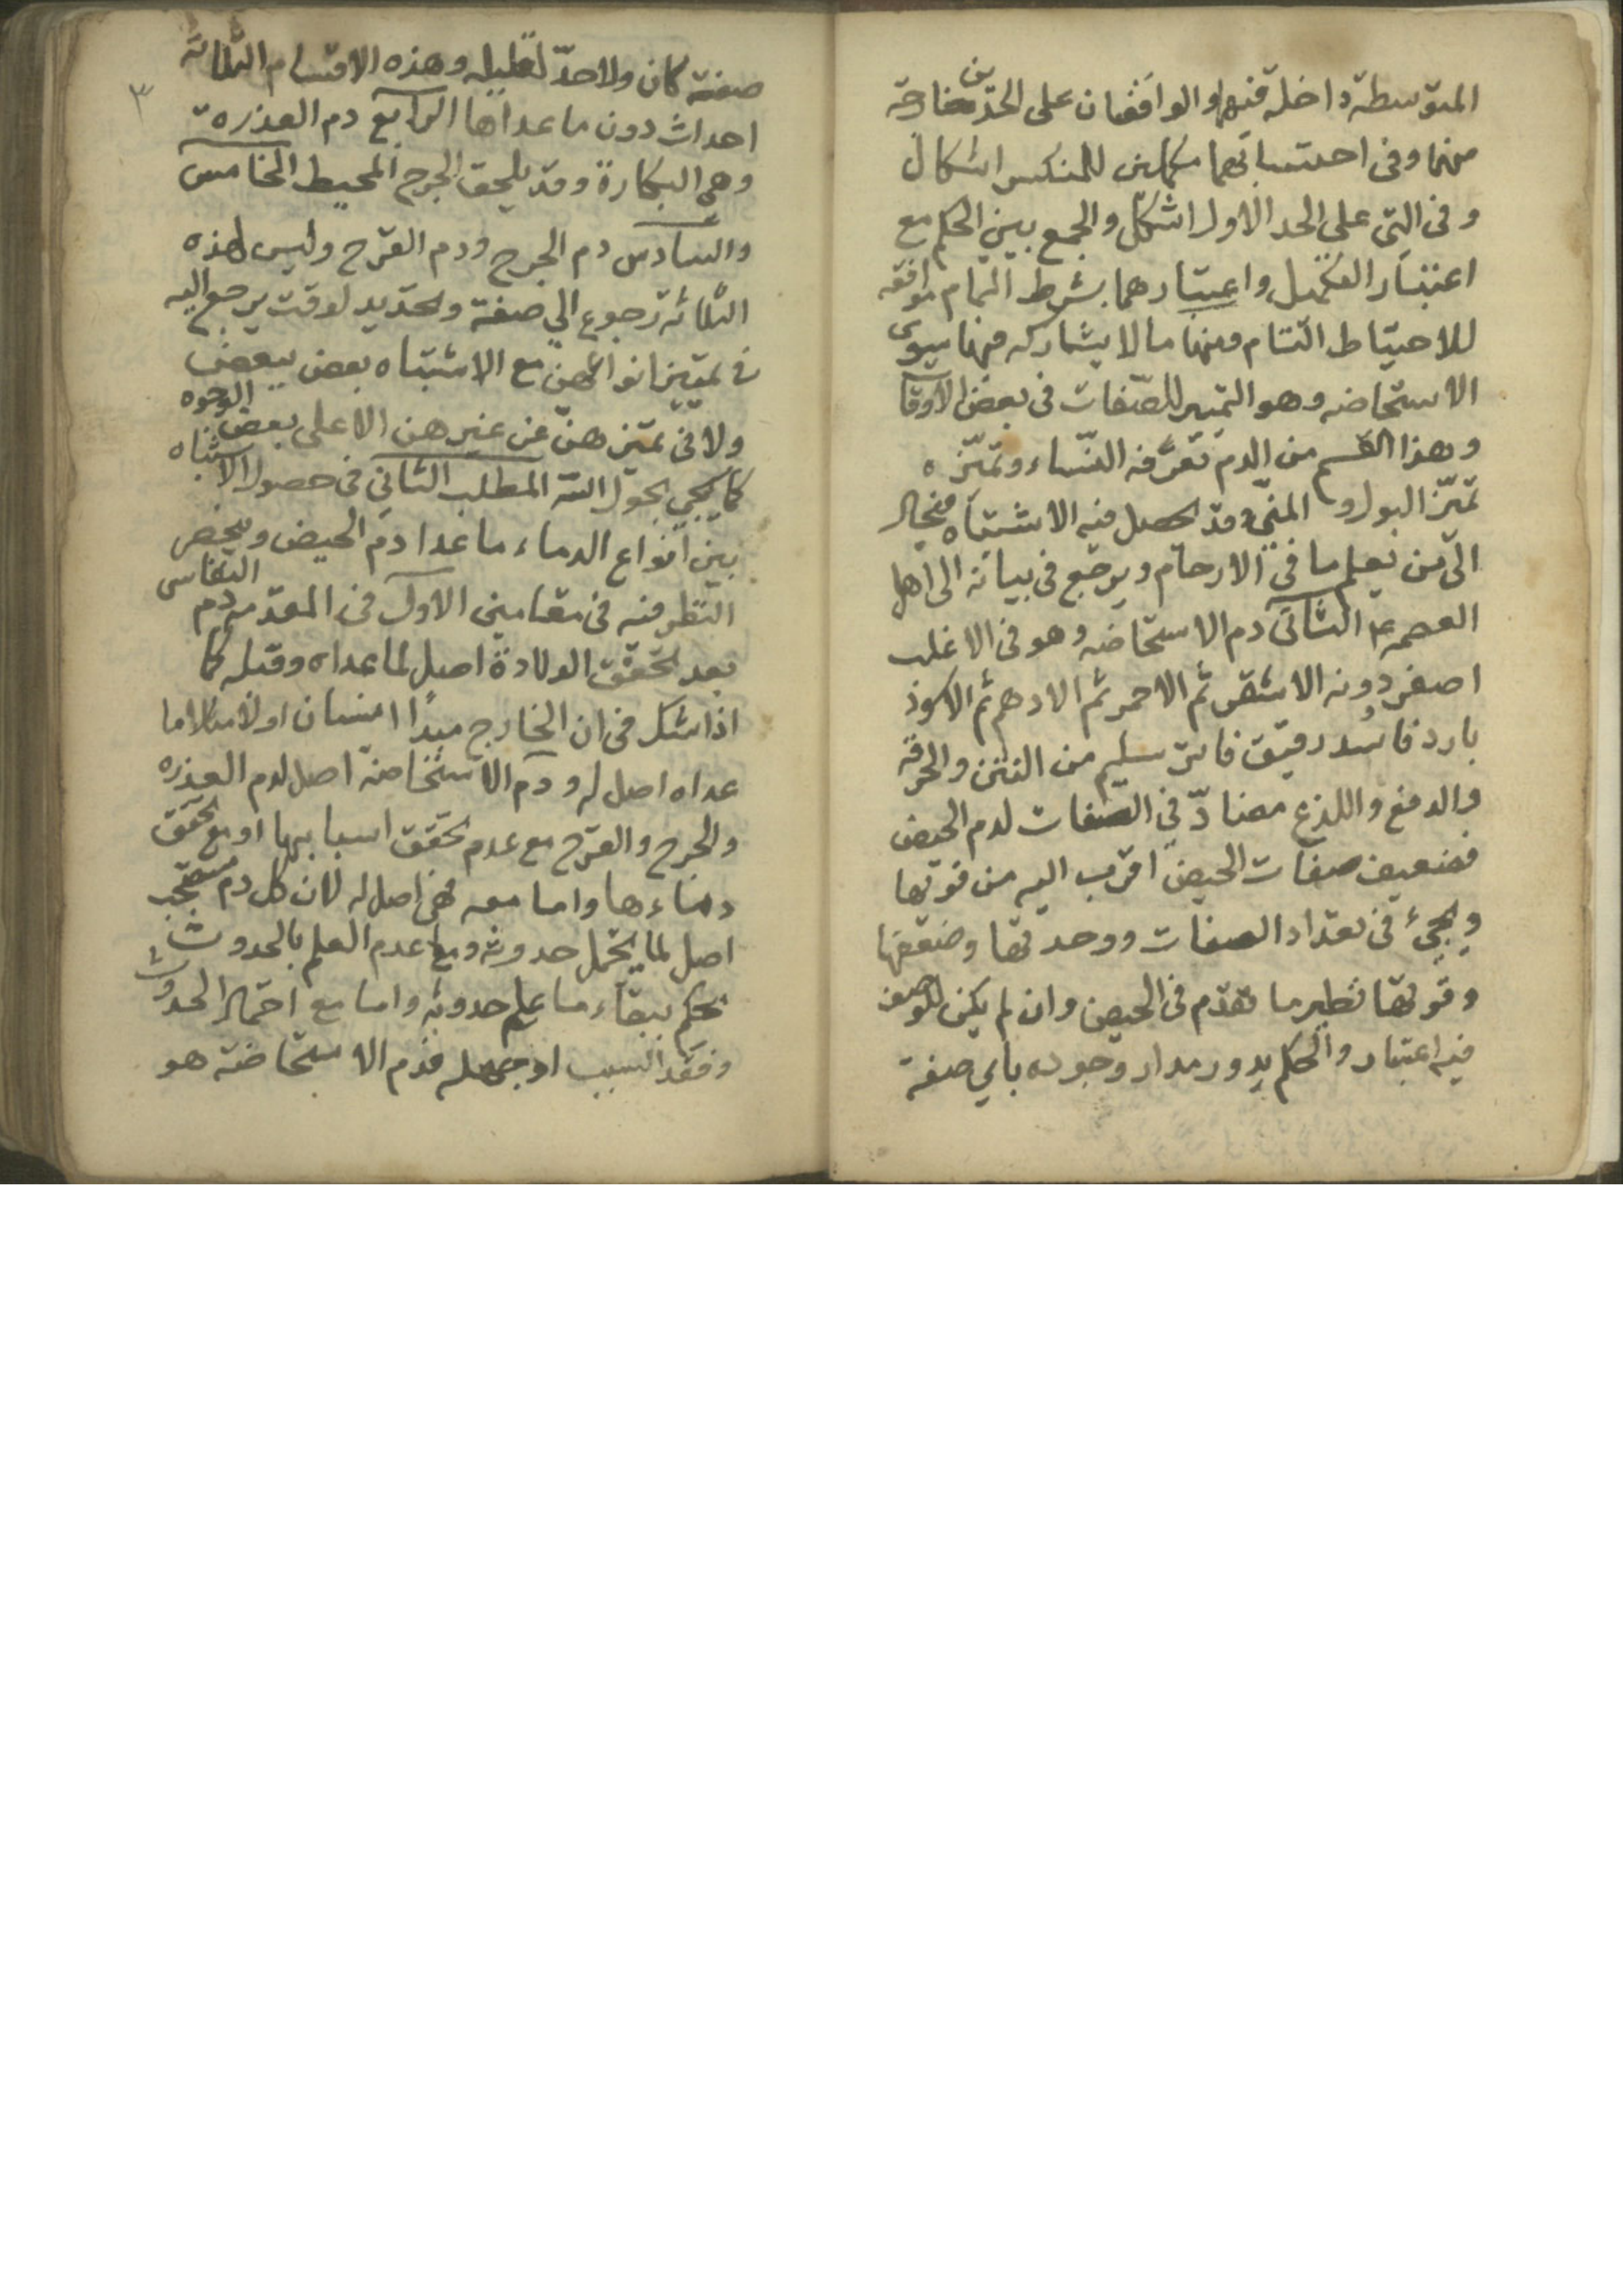 المتوسطة داخلة فيهما والواقفان على الحدين خارجة
منهما وفى احتسابهما مكملين للمنكسر اشكال
وفى التى على الحد الاول اشكل والجمع بين الحكم مع
اعتبار التكميل واعتبارهما بشرط التمام موافقه
للاحتياط التام ومنها ما لا يشاركه فيها سوى
الاستحاضه وهو التميز للصفات فى بعض الاوقا
وهذا القسم من الدم تعرفه النساء وتميزه
تميز البول والمنى وقد يحصل فيه الاشتباه فيحال
الى من يعلم ما فى الارحام ويرجع فى بيانه الى اهل
العصمه الثانى دم الاستحاضه وهو فى الاغلب
اصفر دونه الاشقر ثم الاحمر ثم الادهم ثم الاسود
بارد فاسد رقيق فاتر سليم من النتن والحرقة
والدفع واللذع مضاد فى الصفات لدم الحيض
فضعيف صفات الحيض اقرب اليه من قويها
ويجئ فى تعداد الصفات ووحدتها وضعفها
وقوتها نظير ما تقدم فى الحيض وان لم يكن للوصف
فيه اعتبار والحكم يدور مدار وجوده باي صفة
٣
صفة كان ولا حد لقليله وهذه الاقسام الثلاثة
احداث دون ما عداها الرابع دم العذرة
وهى البكارة وقد يلحق الجرح المحيط الخامس
والسادس دم الجرح ودم القرح وليس لهذه
الثلاثة رجوع الى صفة وتحديد لوقت يرجع اليه
فى تمييز انواعهن مع الاشتباه بعض ببعض
ولا فى تميزهن عن غيرهن الا على بعض الوجوه
كما يجي بحول الله المطلب الثانى فى حصول الاشتباه
بين انواع الدماء ما عدا دم الحيض وينحصر
النظر فيه فى مقامين الاول فى المقدمه دم النفاس
بعد تحقق الولادة اصل لما عداه وقبله كما
اذا شكل فى ان الخارج مبدأ انسان اولا
عداه اصل له ودم الاستحاضة اصل لدم العذره
والجرح والقرح مع عدم تحقق اسبابها او مع تحقق
دماءها واما معه فهى اصل له لان كل دم
اصل لما يحتمل حدوثه ومع عدم العلم بالحدوث
يحكم ببقاء ما علم حدوثه واما مع احتمال الحدوث
وفقد السبب او جهله فدم الاستحاضة هو